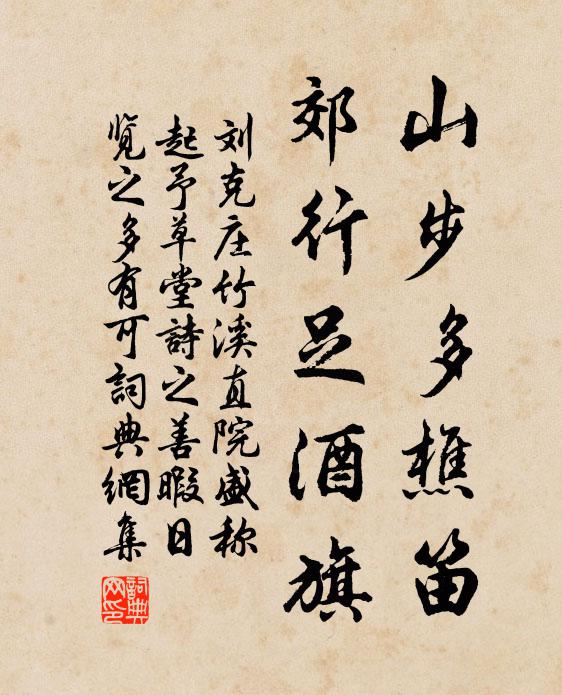 山步多樵笛
郊行足酒旗
刘克庄竹溪直院盛称
起予草堂詩之善暇日
览之多有可詞典網集
詞典網印